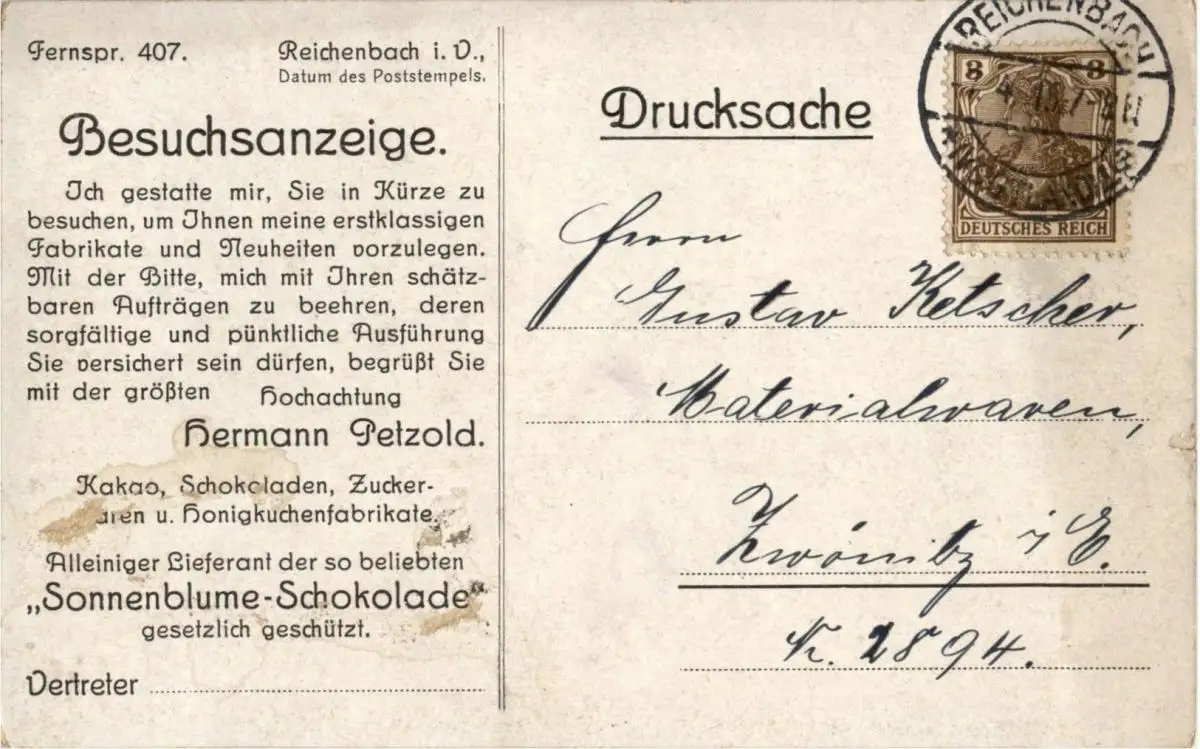 Fernspr. 407.
Reichenbach i. V.,
Datum des Poststempels.
Besuchsanzeige.
Ich gestatte mir, Sie in Kürze zu
besuchen, um Ihnen meine erstklassigen
Fabrikate und Neuheiten vorzulegen.
Mit der Bitte, mich mit Ihren schätz-
baren Aufträgen zu beehren, deren
sorgfältige und pünktliche Ausführung
Sie versichert sein dürfen, begrüßt Sie
mit der größten Hochachtung
Hermann Petzold.
Kakao, Schokoladen, Zucker-
aren u. Honigkuchenfabrikate.
Alleiniger Lieferant der so beliebten
„Sonnenblume-Schokolade“
gesetzlich geschützt.
Vertreter
Drucksache
REICHENBACH
(VOGTLAND)
3 3
DEUTSCHES REICH
Herrn
Gustav Ketscher,
Materialwaren,
Zwönitz i/E.
N. 2894.